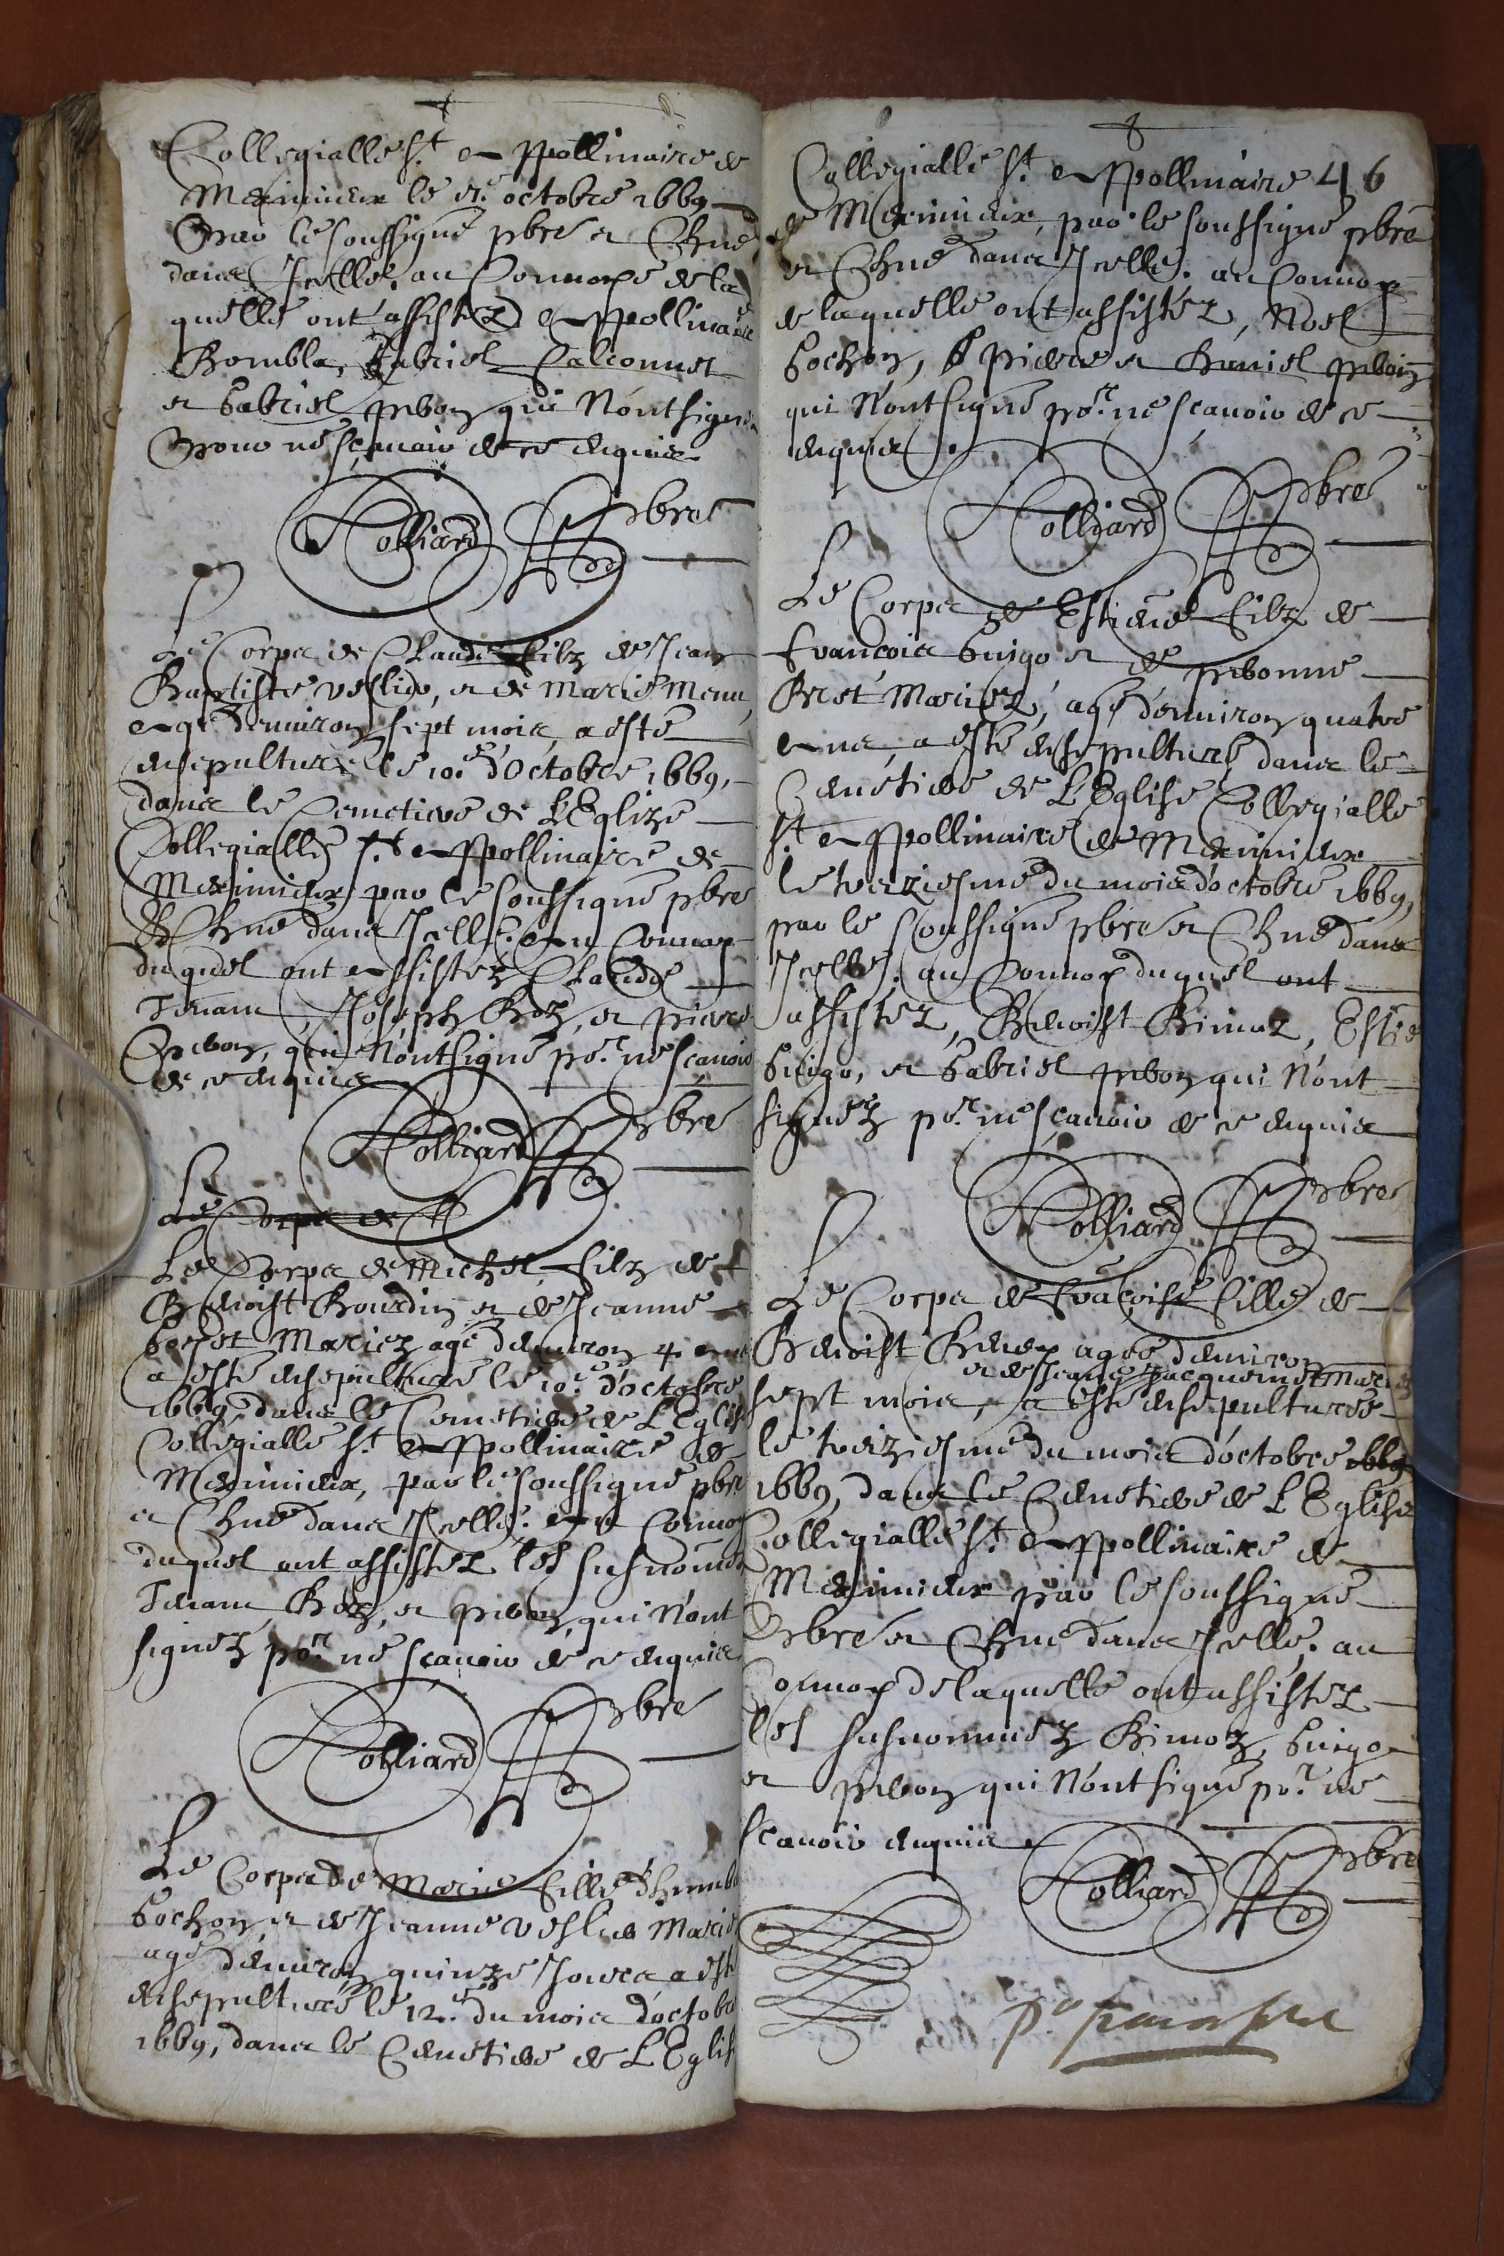 Collegialle St Appollinaire de
Meximieux le octobre 1669
Par le soussigné pbre et Chne
dans Icelle. au Connoy de la
quelle ont assistez Appollinaire
Bombla, Gabriel Falconnet
et Gabriel prbon qui N'ont signé
Pour ne sçavoir de ce enquis
Colliard pbre
Le Corps de Claude filz de Jean
Baptiste veslio, et de Marie
Agé d'environ sept mois, a esté
ensepulturé le 10e d'Octobre 1669,
dans le Cemetiere de L'Eglize
Collegialle St Appollinaire de
Meximieux par le soussigné pbre
& Chne dans Icelle. Au Connoy
duquel ont Assistez Claude
Tenant, Joseph Boz, et pierre
prbon, qui N'ont signé por ne sçavoir
de ce enquis
Colliard pbre
Le Corps de
Le Corps de Michel filz de
Benoist Bourdin et de Jeanne
Mariez agé d'environ 4 ans
a esté ensepulturé le 10e d'octobre
1669, dans le Cemetiere de L'Eglise
Collegialle St Appollinaire de
Meximieux, par le soussigné pbre
et Chne dans Icelle. Au Connoy
duquel ont assistez les susnommez
Tenant Boz, et prbon, qui N'ont
signez por ne sçavoir de ce enquis
Colliard pbre
Le Corps de Marie fille d'humbert
Gochon et de Jeanne veslio Mariez
agé d'environ quinze Jours a esté
ensepulturé le 12e du mois d'octobre
1669, dans le Cemetiere de L'Eglise
Collegialle St Appollinaire 46
de Meximieux, par le soussigné pbre
et Chne dans Icelle. au Connoy
de laquelle ont assistez, Noel
Gochon, pierre et Daniel prbon
qui N'ont signé por ne sçavoir de ce
enquis
Colliard pbre
Le Corps de Estienne filz de
françois Guigo et de prbonne
Bret Mariez, agé d'environ quatre
Ans, a esté ensepulturé dans le
Cemetiere de L'Eglise Collegialle
St Appollinaire de Meximieux
le treziesme du mois d'octobre 1669,
par le soussigné pbre et Chne dans
Icelle. au Connoy duquel ont
assistez, Benoist Bimoz, Estie
Guigo, et Gabriel prbon qui N'ont
signez por ne sçavoir de ce enquis
Colliard pbre
Le Corps de fraçoise fille de
Benoist agée d'environ
et de Jeanne Jacquemet Mariez
sept mois, a esté ensepulturée
le treiziesme du mois d'octobre 1669
1669, dans le Cemetiere de L'Eglise
Collegialle St Appollinaire de
Meximieux par le soussigné
Pbre et Chne dans Icelle. au
Connoy de laquelle ont assistez
les susnommez Bimoz, Guigo
et prbon qui N'ont signé por ne
sçavoir enquis
Colliard pbre